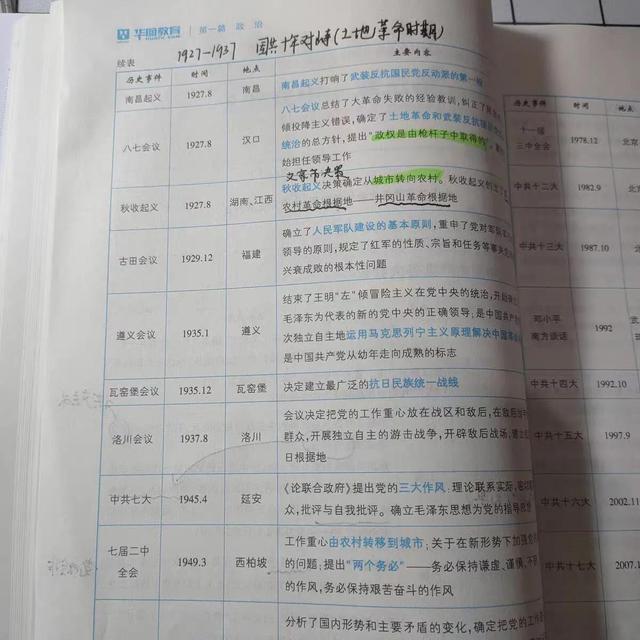 华图教育 第一篇 政治
1927-1937 国共十年对峙(土地革命时期)
续表
历史事件 时间 地点 主要内容
南昌起义 1927.8 南昌 南昌起义打响了武装反抗国民党反动派的第一
八七会议 1927.8 汉口
八七会议总结了大革命失败的经验教训,纠正了
倾投降主义错误,确定了土地革命和武装反抗
统治的总方针,提出“政权是由枪杆子中取得的”
始担任领导工作
文家市决策
秋收起义 1927.8 湖南、江西
秋收起义决策确定从城市转向农村。秋收起义
农村革命根据地——井冈山革命根据地
古田会议 1929.12 福建
确立了人民军队建设的基本原则,重申了党对军队
领导的原则,规定了红军的性质、宗旨和任务等
兴衰成败的根本性问题
遵义会议 1935.1 遵义
结束了王明“左”倾冒险主义在党中央的统治,开
毛泽东为代表的新的党中央的正确领导;是中国共产
次独立自主地运用马克思列宁主义原理解决中国
是中国共产党从幼年走向成熟的标志
瓦窑堡会议 1935.12 瓦窑堡 决定建立最广泛的抗日民族统一战线
洛川会议 1937.8 洛川
会议决定把党的工作重心放在战区和敌后,在敌后
群众,开展独立自主的游击战争,开辟敌后战场,建立
日根据地
中共七大 1945.4 延安
《论联合政府》提出党的三大作风:理论联系实际,
众,批评与自我批评。确立毛泽东思想为党的指导思想
七届二中
全会 1949.3 西柏坡
工作重心由农村转移到城市;关于在新形势下加强党
的问题;提出“两个务必”——务必保持谦虚、谨慎、不
的作风,务必保持艰苦奋斗的作风
分析了国内形势和主要矛盾的变化,确定把党的工作
历史事件 时间 地点
十一届
三中全会 1978.12 北京
中共十二大 1982.9 北京
中共十三大 1987.10
邓小平
南方谈话 1992
中共十四大 1992.10
中共十五大 1997.9
中共十六大 2002.11
中共十七大 2007.1